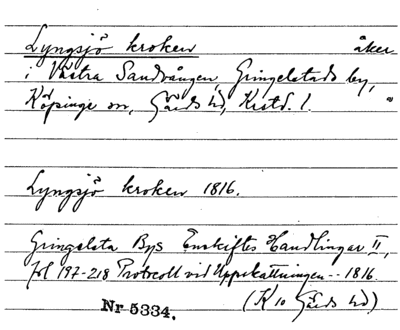 Lyngsjö kroken åker
i Västra Sandvången, Gringelstads by,
Köpinge sn, Gärds hd, Krstd. l.
Lyngsjö kroken 1816.
Gringelsta Bys Enskiftes Handlingar II,
fol 197-218 Protocoll vid Uppskattningen -- 1816.
(K 10 Gärds hd)
Nr 5334.